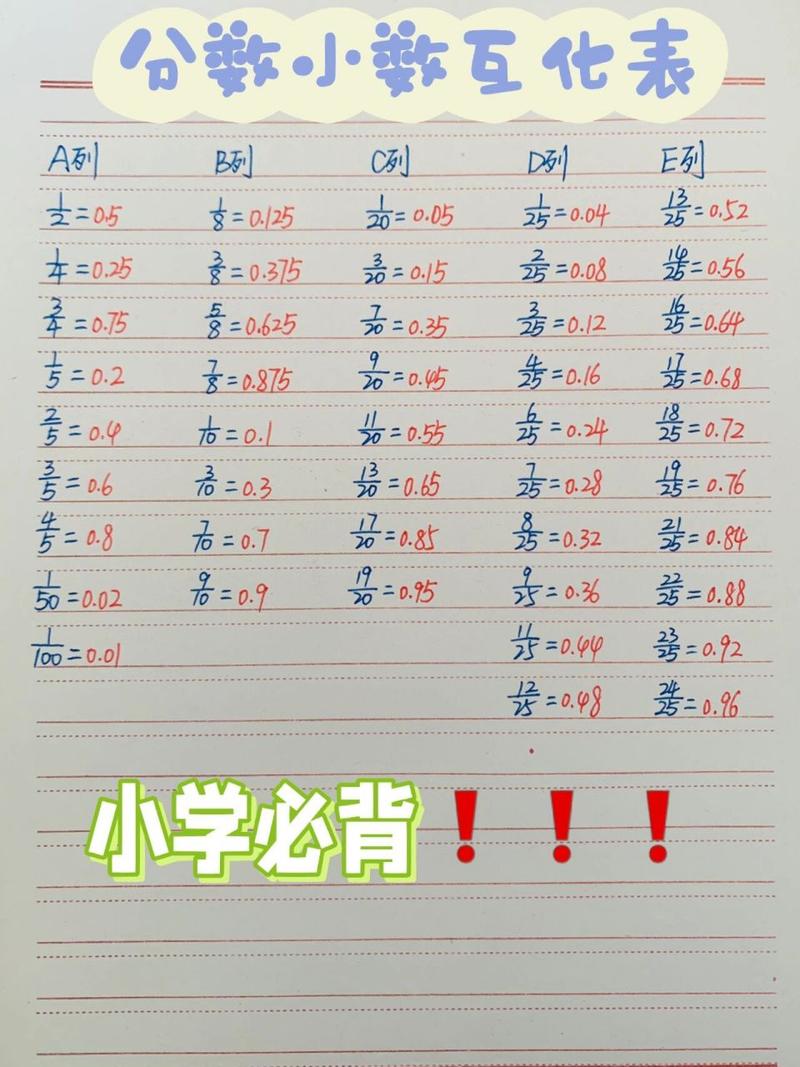 分数小数互化表
A列 B列 C列 D列 E列
1/2=0.5 1/8=0.125 1/20=0.05 1/25=0.04 13/25=0.52
1/4=0.25 3/8=0.375 3/20=0.15 2/25=0.08 14/25=0.56
3/4=0.75 5/8=0.625 7/20=0.35 3/25=0.12 16/25=0.64
1/5=0.2 7/8=0.875 9/20=0.45 4/25=0.16 17/25=0.68
2/5=0.4 1/10=0.1 11/20=0.55 6/25=0.24 18/25=0.72
3/5=0.6 3/10=0.3 13/20=0.65 7/25=0.28 19/25=0.76
4/5=0.8 7/10=0.7 17/20=0.85 8/25=0.32 21/25=0.84
1/50=0.02 9/10=0.9 19/20=0.95 9/25=0.36 22/25=0.88
1/100=0.01 11/25=0.44 23/25=0.92
12/25=0.48 24/25=0.96
小学必背❗❗❗